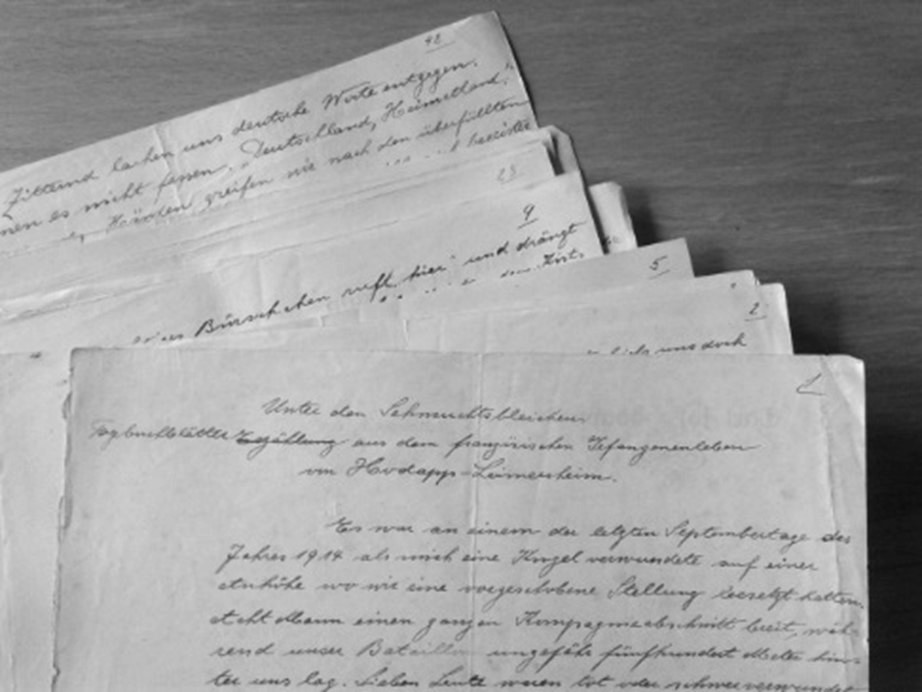 42
Zitternd lachen uns deutsche Worte entgegen.
nen es nicht fassen, "Deutschland, Heimatland,"
Händen greifen wie nach den überfüllten
28
9
Bürschchen ruft "hier" und drängt
5
2
uns doch
1
Unter den Sehnsuchtsbleichen
Tagebuchblätter Erzählung aus dem französischen Gefangenenleben
von Hodapp-Leimersheim.
Es war an einem der letzten Septembertage des
Jahres 1914 als mich eine Kugel verwundete auf einer
Anhöhe wo wir eine vorgeschobene Stellung besetzt hatten.
Acht Mann einen ganzen Kompagnieabschnitt breit, wäh-
rend unser Bataillon ungefähr fünfhundert Meter hin-
ter uns lag. Sieben Leute waren tot oder schwerverwundet